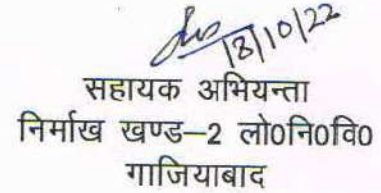 18/10/22
सहायक अभियन्ता
निर्माख खण्ड–2 लो0नि0वि0
गाजियाबाद